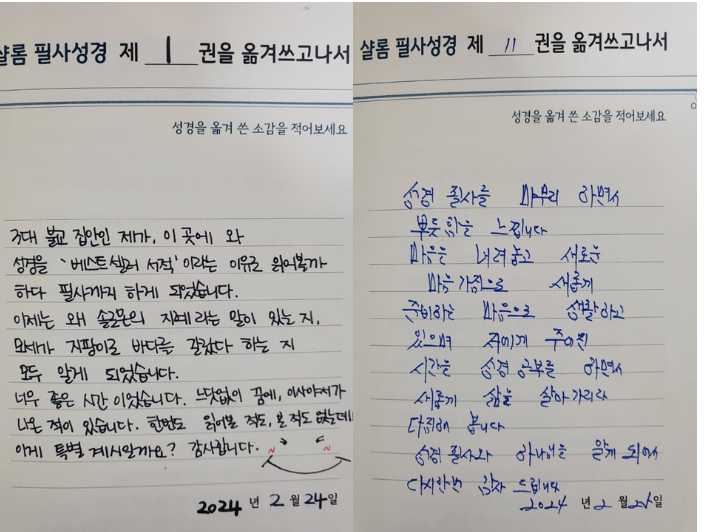 샬롬 필사성경 제 1 권을 옮겨쓰고나서
성경을 옮겨 쓴 소감을 적어보세요
3대 불교 집안인 제가, 이 곳에 와
성경을 '베스트셀러 서적'이라는 이유로 읽어볼까
하다 필사까지 하게 되었습니다.
이제는 왜 솔로몬의 지혜라는 말이 있는 지,
모세가 지팡이로 바다를 갈랐다 하는 지
모두 알게 되었습니다.
너무 좋은 시간 이었습니다. 느닷없이 꿈에, 이사야서가
나온 적이 있습니다. 한번도 읽어본 적도, 본 적도 없는데
이게 특별 계시일까요? 감사합니다.
2024 년 2 월 24 일
샬롬 필사성경 제 11 권을 옮겨쓰고나서
성경을 옮겨 쓴 소감을 적어보세요
성경 필사를 마무리 하면서
뿌듯함을 느낍니다
마음을 내려놓고 새로운
마음가짐으로 새롭게
준비하는 마음으로 생활하고
있으며 저에게 주어진
시간을 성경 공부를 하면서
새롭게 삶을 살아가리라
다짐해 봅니다
성경 필사와 하나님을 알게 되어서
다시한번 감사 드립니다
2024 년 2 월 일